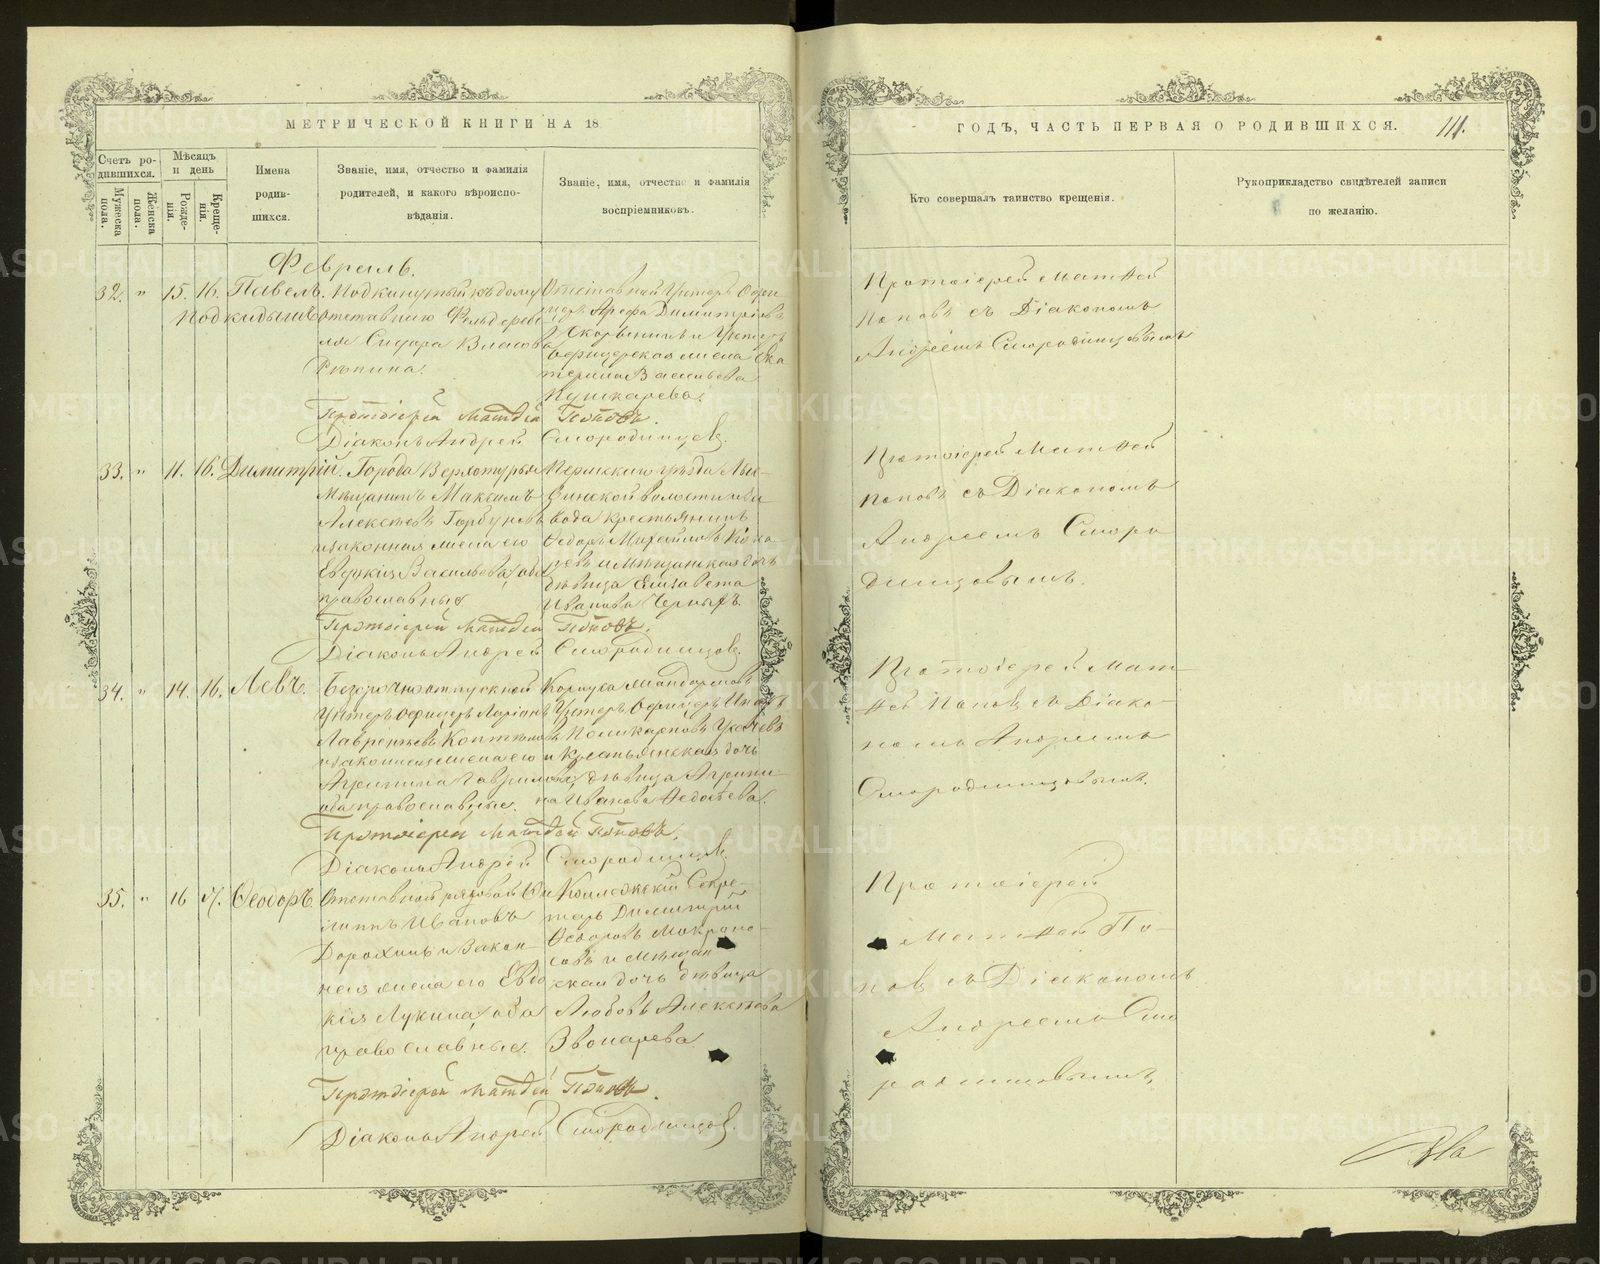 МЕТРИЧЕСКОЙ КНИГИ НА 18
Счетъ ро-
дившихся.
Мужеска
пола.
Женска
пола.
Мѣсяцъ
и день
Рожде-
нія.
Креще-
нія.
Имена
родив-
шихся.
Званіе, имя, отчество и фамилія
родителей, и какого вѣроиспо-
вѣданія.
Званіе, имя, отчество и фамилія
воспріемниковъ.
Февраль.
32. " 15. 16. Павелъ.
Подкидышъ
Подкинутый къ дому
отставному
Сидора Власова
Рѣпина.
Отставной Унтеръ Офи-
церъ Арефа Димитріевъ
и Унтеръ
офицерская жена Ека
терина Васильева
Пушкарева.
Протоіерей Матѳей Поповъ.
Діаконъ Андрей Смородинцевъ.
33. " 11. 16. Димитрій.
Города Верхотурья
Мѣщанинъ Максимъ
Алексѣевъ Горбуновъ
и законная жена его
Евдокія Васильева, оба
православные
Пермскаго уѣзда
волости
завода крестьянинъ
Ѳедоръ Михайловъ
и Мѣщанская дочь
дѣвица Елизавета
Иванова Черныхъ.
Протоіерей Матѳей Поповъ.
Діаконъ Андрей Смородинцовъ.
34. " 14. 16. Левъ.
Безсрочноотпускной
Унтеръ Офицеръ Ларіонъ
Лаврентьевъ
и законная жена его
Агрипина Гаврилова,
оба православные.
Корпуса Жандармовъ
Унтеръ Офицеръ
Поликарповъ
и Крестьянская дочь
дѣвица Агрипи-
на Иванова Ѳедосѣева.
Протоіерей Матѳей Поповъ.
Діаконъ Андрей Смородинцовъ.
35. " 16 17. Ѳеодоръ
Отставной рядовой Фи
липпъ Ивановъ
Дорохинъ и закон-
ная жена его Евдо
кія Лукина, оба
православные.
Коллежскій Секре-
тарь Димитрій
Ѳедоровъ Мокроно-
совъ и Мѣщан
ская дочь дѣвица
Любовь Алексѣева
Звонарева.
Протоіерей Матѳей Поповъ.
Діаконъ Андрей Смородинцовъ.
ГОДЪ, ЧАСТЬ ПЕРВАЯ О РОДИВШИХСЯ.
111.
Кто совершалъ таинство крещенія.
Рукоприкладство свидѣтелей записи
по желанію.
Протоіерей Матѳей
Поповъ съ Діакономъ
Андреемъ Смородинцовымъ
Протоіерей Матѳей
Поповъ съ Діакономъ
Андреемъ Сморо
динцовымъ.
Протоіерей Мат
ѳей Поповъ съ Діако-
номъ Андреемъ
Смородинцовымъ.
Протоіерей
Матѳей По-
повъ съ Діакономъ
Андреемъ Смо
родинцовымъ,
METRIKI.GASO-URAL.RU